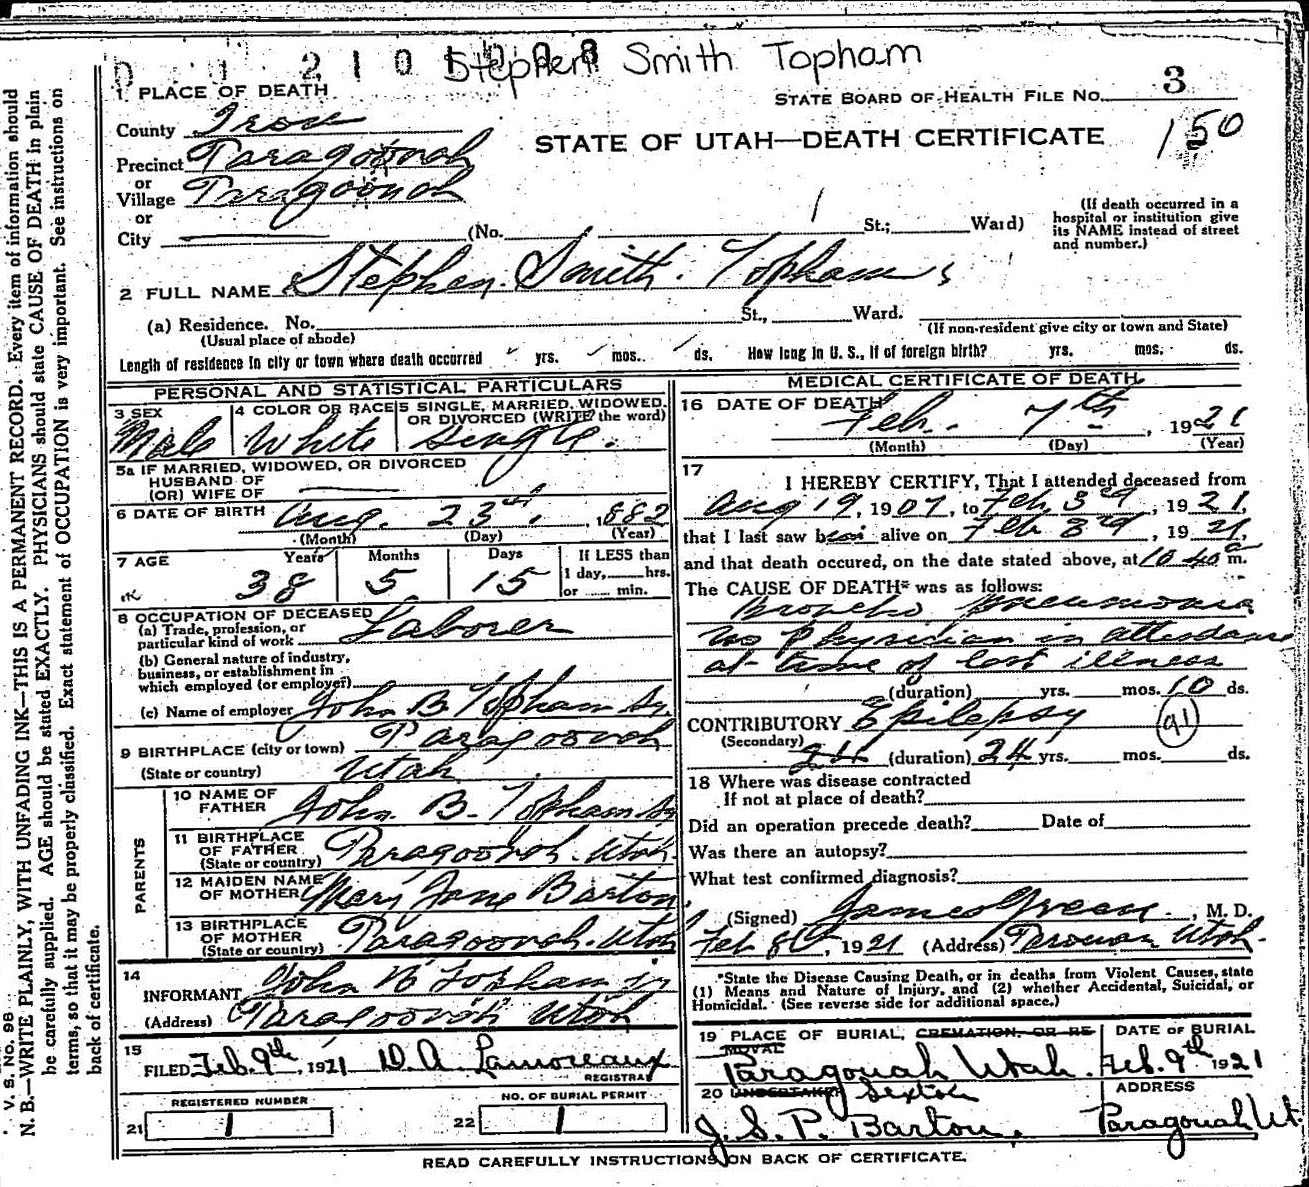 Stephen Smith Topham
1 PLACE OF DEATH
STATE BOARD OF HEALTH FILE No. 3
County Iron
STATE OF UTAH—DEATH CERTIFICATE
150
Precinct Paragoonah
or
Village Paragoonah
or
City
(No. St.; Ward)
(If death occurred in a
hospital or institution give
its NAME instead of street
and number.)
2 FULL NAME Stephen Smith Topham
(a) Residence. No. St., Ward.
(Usual place of abode)
(If non-resident give city or town and State)
Length of residence in city or town where death occurred yrs. mos. ds. How long in U. S., if of foreign birth? yrs. mos. ds.
PERSONAL AND STATISTICAL PARTICULARS
3 SEX
Male
4 COLOR OR RACE
White
5 SINGLE, MARRIED, WIDOWED,
OR DIVORCED (WRITE the word)
Single.
5a IF MARRIED, WIDOWED, OR DIVORCED
HUSBAND OF
(OR) WIFE OF
6 DATE OF BIRTH Aug. 23rd, 1882
(Month) (Day) (Year)
7 AGE
Years Months Days
38 5 15
If LESS than
1 day, hrs.
or min.
8 OCCUPATION OF DECEASED
(a) Trade, profession, or
particular kind of work Laborer
(b) General nature of industry,
business, or establishment in
which employed (or employer)
(c) Name of employer John B Topham Sr.
9 BIRTHPLACE (city or town) Paragoonah
(State or country) Utah
PARENTS
10 NAME OF
FATHER John B. Topham Sr
11 BIRTHPLACE
OF FATHER
(State or country) Paragoonah. Utah.
12 MAIDEN NAME
OF MOTHER Mary Jane Barton
13 BIRTHPLACE
OF MOTHER
(State or country) Paragoonah. Utah
14
INFORMANT John B Topham jr
(Address) Paragoonah Utah
15
FILED Feb. 9th, 1921 D. A. Lamoreaux
REGISTRAR
REGISTERED NUMBER
21 1
NO. OF BURIAL PERMIT
22 1
MEDICAL CERTIFICATE OF DEATH
16 DATE OF DEATH
Feb. 7th, 1921
(Month) (Day) (Year)
17
I HEREBY CERTIFY, That I attended deceased from
Aug 19, 1907, to Feb 3rd, 1921,
that I last saw him alive on Feb 3rd, 1921,
and that death occured, on the date stated above, at 10 40 a m.
The CAUSE OF DEATH* was as follows:
Broncho Pneumonia
No physician in attendance
at time of last illness
(duration) yrs. mos. 10 ds.
CONTRIBUTORY Epilepsy
(Secondary)
91
24 (duration) 24 yrs. mos. ds.
18 Where was disease contracted
If not at place of death?
Did an operation precede death? Date of
Was there an autopsy?
What test confirmed diagnosis?
(Signed) James Green, M. D.
Feb 8th, 1921 (Address) Parowan Utah.
*State the Disease Causing Death, or in deaths from Violent Causes, state
(1) Means and Nature of Injury, and (2) whether Accidental, Suicidal, or
Homicidal. (See reverse side for additional space.)
19 PLACE OF BURIAL, CREMATION, OR RE
MOVAL
Paragonah Utah.
DATE OF BURIAL
Feb. 9th 1921
20 UNDERTAKER Sexton
J. S. P. Barton.
ADDRESS
Paragonah Ut.
READ CAREFULLY INSTRUCTIONS ON BACK OF CERTIFICATE.
V. S. No. 98
N. B.—WRITE PLAINLY, WITH UNFADING INK—THIS IS A PERMANENT RECORD. Every item of information should
be carefully supplied. AGE should be stated EXACTLY. PHYSICIANS should state CAUSE OF DEATH in plain
terms, so that it may be properly classified. Exact statement of OCCUPATION is very important. See instructions on
back of certificate.